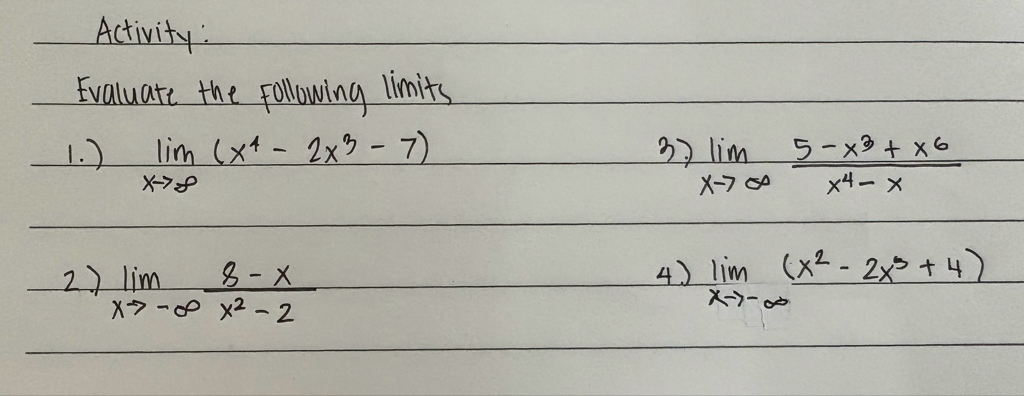 Activity:
Evaluate the following limits
1.) lim (x⁴ - 2x³ - 7)
x→∞
3.) lim 5 - x³ + x⁶
x→∞ x⁴ - x
2.) lim 8 - x
x→ -∞ x² - 2
4.) lim (x² - 2x⁵ + 4)
x→-∞